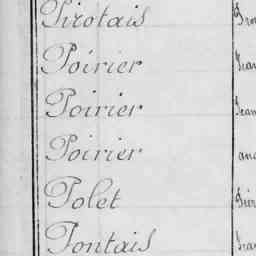 Pirotais
Poirier
Poirier
Poirier
Polet
Pontais